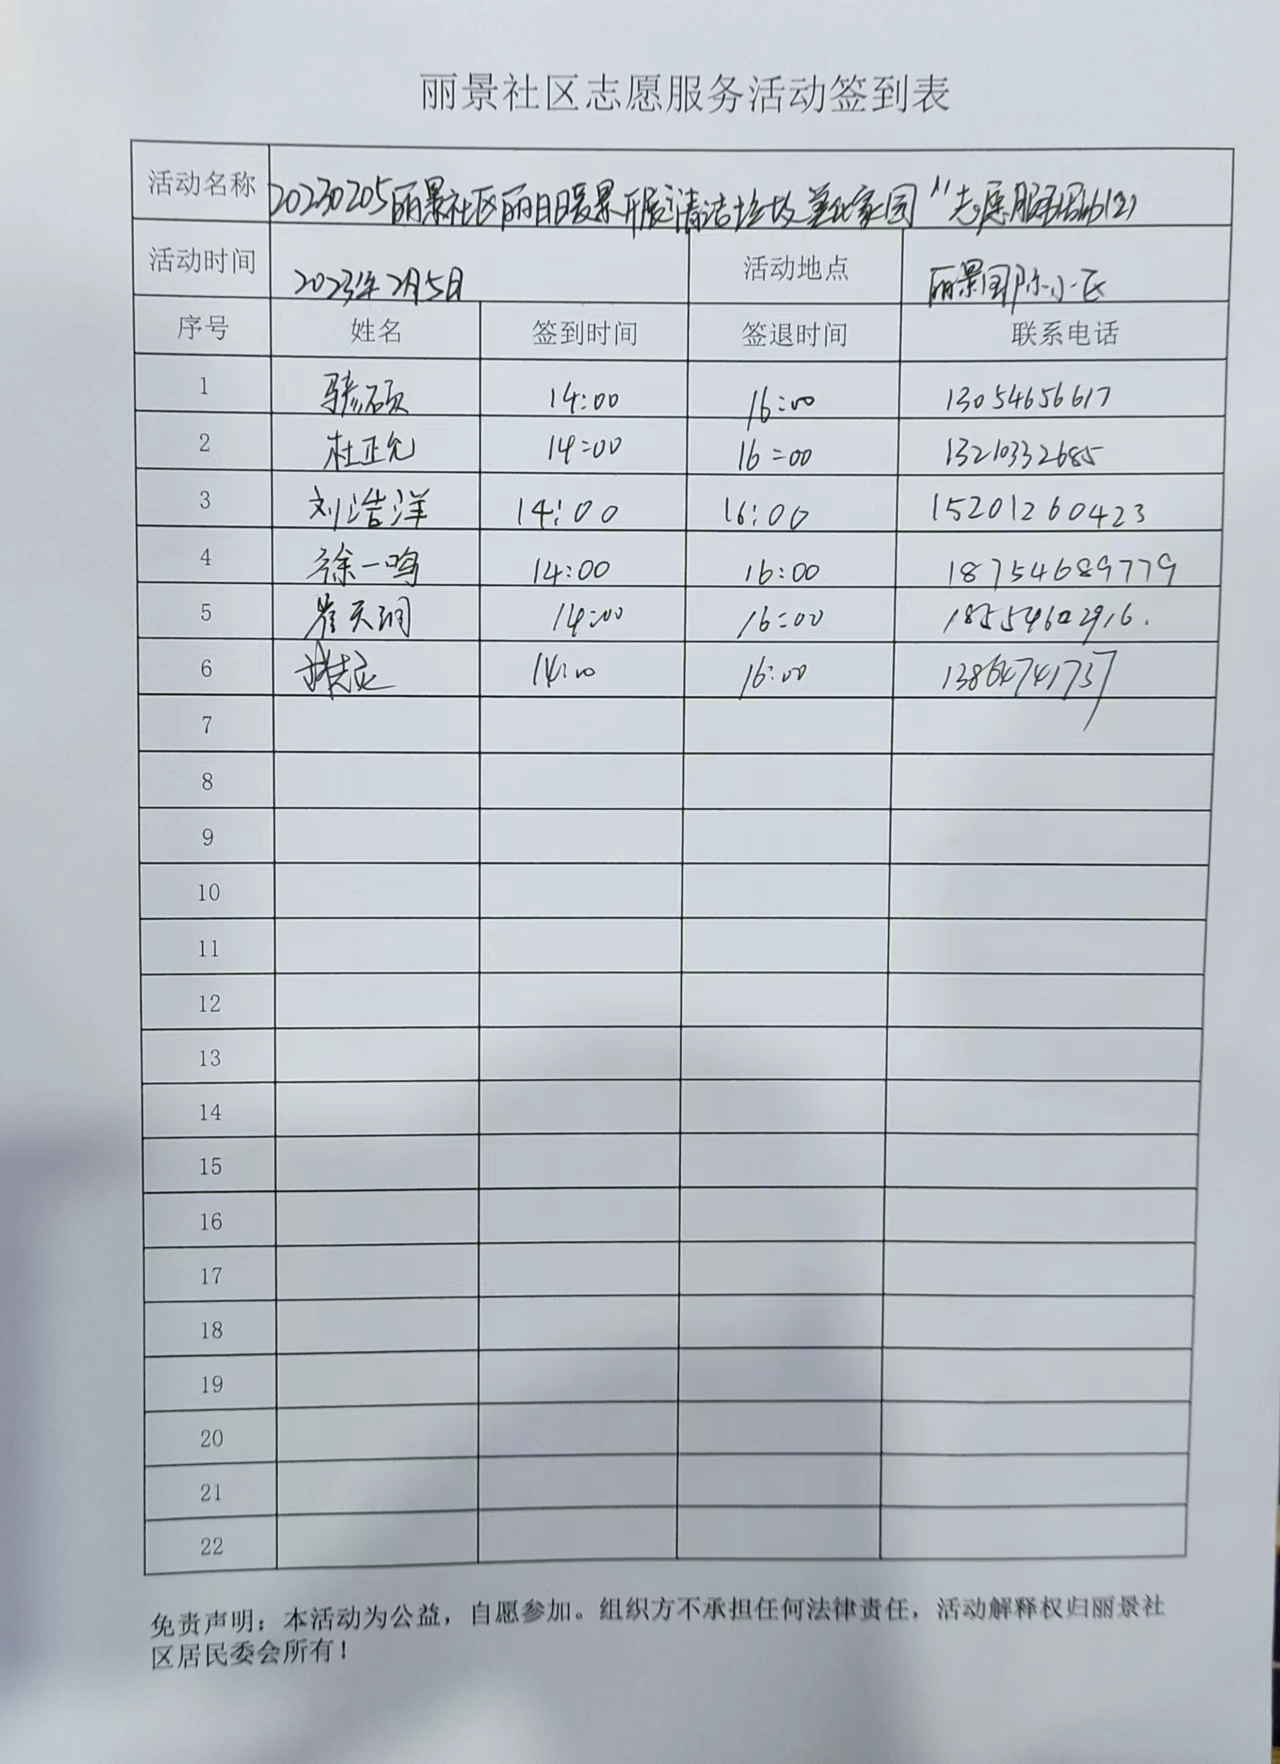 丽景社区志愿服务活动签到表
活动名称 20230205丽景社区丽日暖景开展"清洁垃圾 美化家园"志愿服务活动(2)
活动时间 2023年2月5日 活动地点 丽景国际小区
序号 姓名 签到时间 签退时间 联系电话
1 硕 14:00 16:00 13054656617
2 杜正允 14:00 16:00 13210332685
3 刘浩洋 14:00 16:00 15201260423
4 徐一鸣 14:00 16:00 18754689779
5 崔天润 14:00 16:00 18554602916.
6 14:00 16:00 13864741737
7
8
9
10
11
12
13
14
15
16
17
18
19
20
21
22
免责声明：本活动为公益，自愿参加。组织方不承担任何法律责任，活动解释权归丽景社
区居民委会所有！